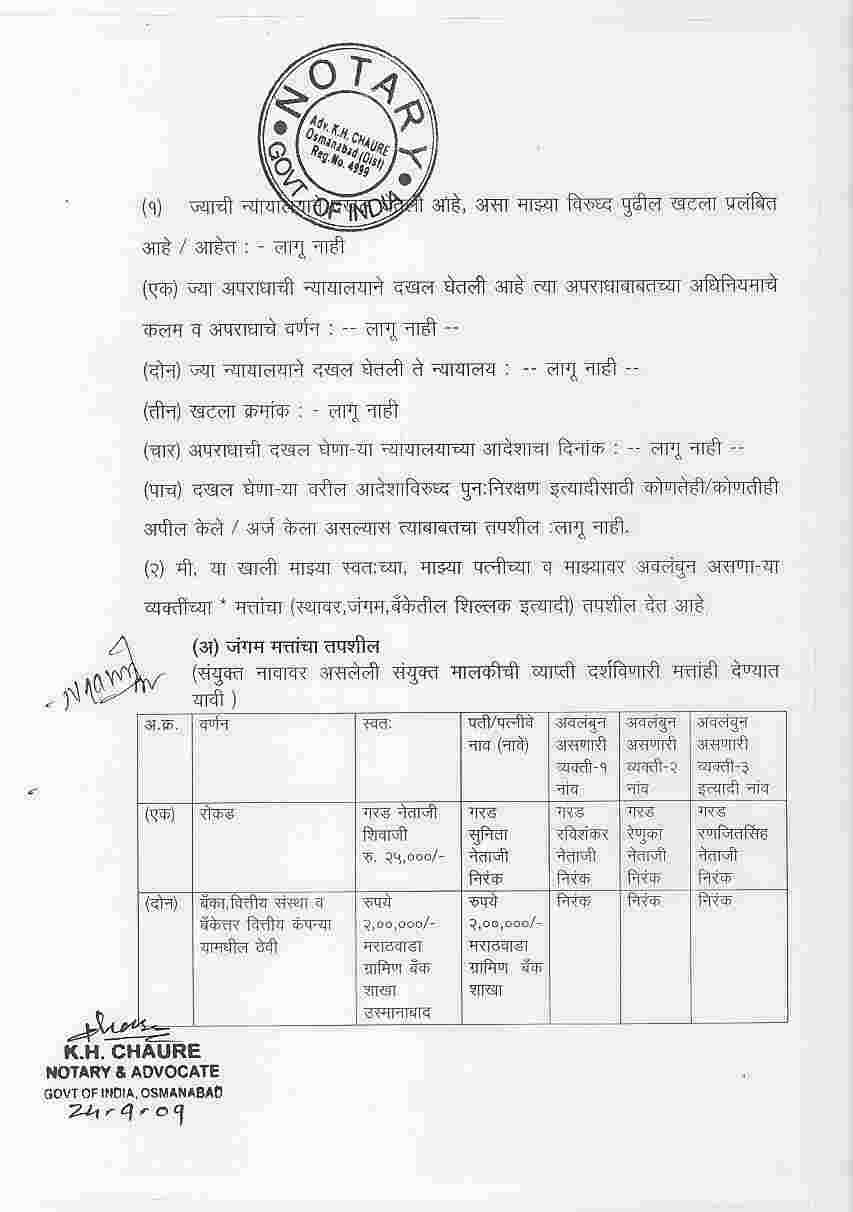 NOTARY
Adv. K.H. CHAURE
Osmanabad (Dist)
Reg. No. 4999
GOVT OF INDIA
(१) ज्याची न्यायालयात दखल घेतली आहे, असा माझ्या विरुध्द पुढील खटला प्रलंबित
आहे / आहेत : - लागू नाही
(एक) ज्या अपराधाची न्यायालयाने दखल घेतली आहे त्या अपराधाबाबतच्या अधिनियमाचे
कलम व अपराधाचे वर्णन : -- लागू नाही --
(दोन) ज्या न्यायालयाने दखल घेतली ते न्यायालय : -- लागू नाही --
(तीन) खटला क्रमांक : - लागू नाही
(चार) अपराधाची दखल घेणा-या न्यायालयाच्या आदेशाचा दिनांक : -- लागू नाही --
(पाच) दखल घेणा-या वरील आदेशाविरुध्द पुन:निरक्षण इत्यादीसाठी कोणतेही/कोणतीही
अपील केले / अर्ज केला असल्यास त्याबाबतचा तपशील :लागू नाही.
(२) मी, या खाली माझ्या स्वत:च्या, माझ्या पत्नीच्या व माझ्यावर अवलंबुन असणा-या
व्यक्तींच्या * मत्तांचा (स्थावर,जंगम,बँकेतील शिल्लक इत्यादी) तपशील देत आहे
(अ) जंगम मत्तांचा तपशील
(संयुक्त नावावर असलेली संयुक्त मालकीची व्याप्ती दर्शविणारी मत्तांही देण्यात
यावी )
अ.क्र. वर्णन स्वत: पती/पत्नीचे अवलंबुन अवलंबुन अवलंबुन
नाव (नावे) असणारी असणारी असणारी
व्यक्ती-१ व्यक्ती-२ व्यक्ती-३
नांव नांव इत्यादी नांव
(एक) रोकड गरड नेताजी गरड गरड गरड गरड
शिवाजी सुनिता रविशंकर रेणुका रणजितसिंह
रु. २५,०००/- नेताजी नेताजी नेताजी नेताजी
निरंक निरंक निरंक निरंक
(दोन) बँका,वित्तीय संस्था व रुपये रुपये निरंक निरंक निरंक
बँकेत्तर वित्तीय कंपन्या २,००,०००/- २,००,०००/-
यामधील ठेवी मराठवाडा मराठवाडा
ग्रामिण बँक ग्रामिण बँक
शाखा शाखा
उस्मानाबाद
K.H. CHAURE
NOTARY & ADVOCATE
GOVT OF INDIA, OSMANABAD
24-9-09